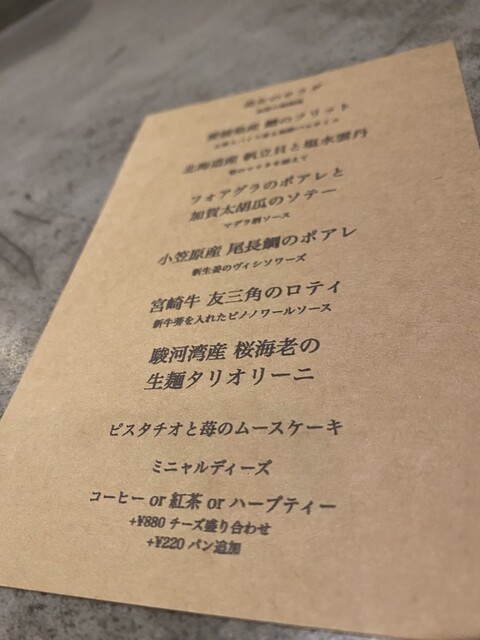 北海道産 帆立貝と塩水雲丹
フォアグラのポアレと
加賀太胡瓜のソテー
マデラ酒ソース
小笠原産 尾長鯛のポアレ
新生姜のヴィシソワーズ
宮崎牛 友三角のロティ
新牛蒡を入れたピノノワールソース
駿河湾産 桜海老の
生麺タリオリーニ
ピスタチオと苺のムースケーキ
ミニャルディーズ
コーヒー or 紅茶 or ハーブティー
+¥880 チーズ盛り合わせ
+¥220 パン追加